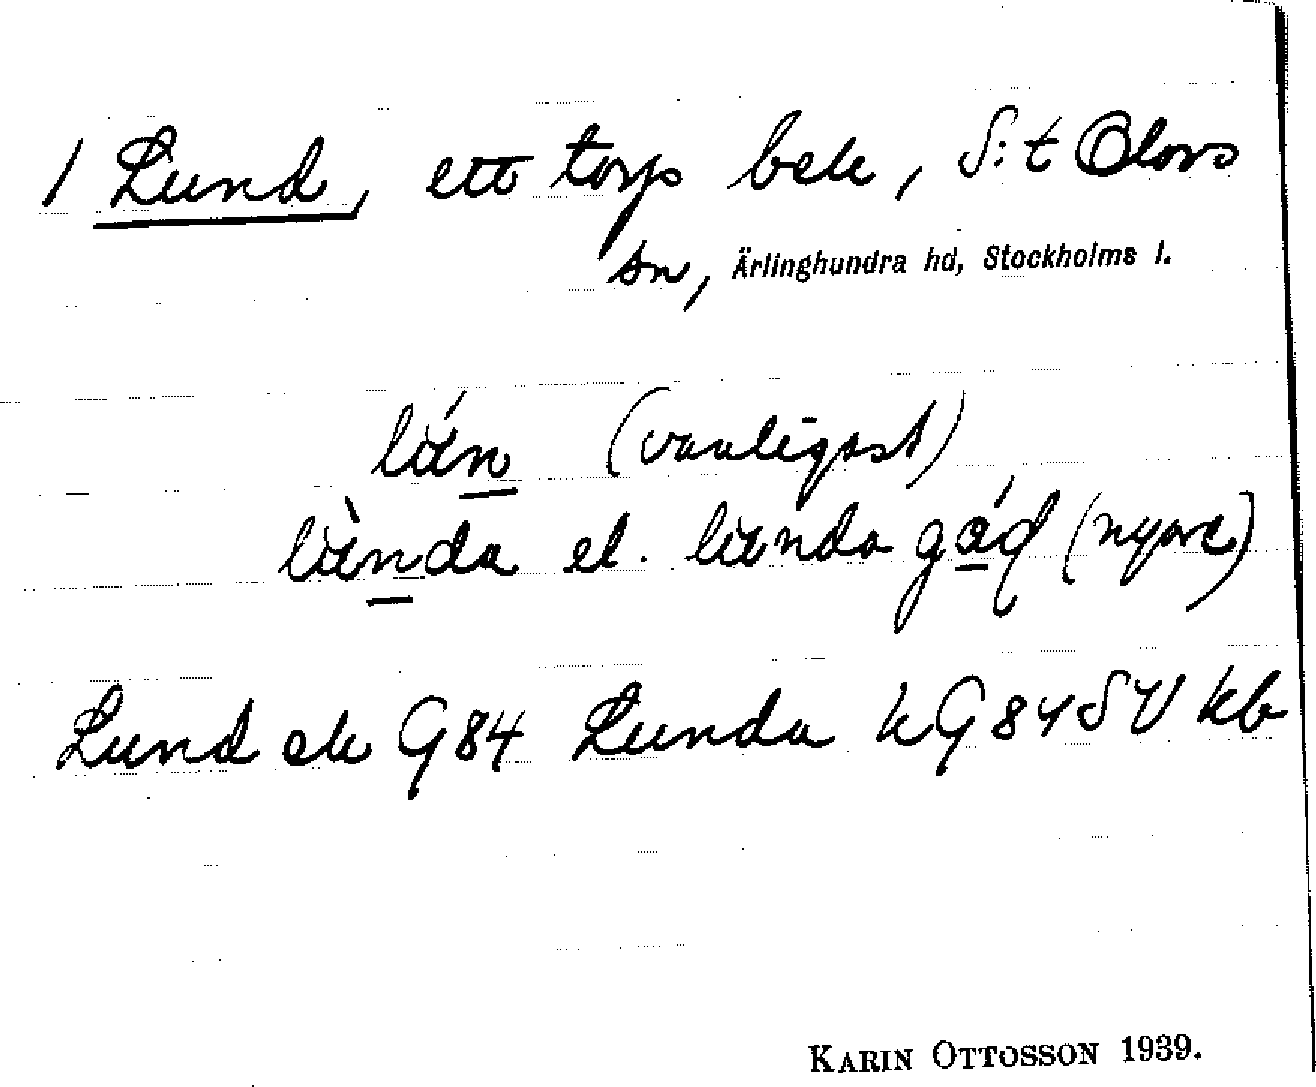 1 Lund, ett torp bek, S:t Olovs
sn, Ärlinghundra hd, Stockholms l.
(vanligast)
el. (nyare)
Lund ek G84 Lunda k G84 SV kb
KARIN OTTOSSON 1939.